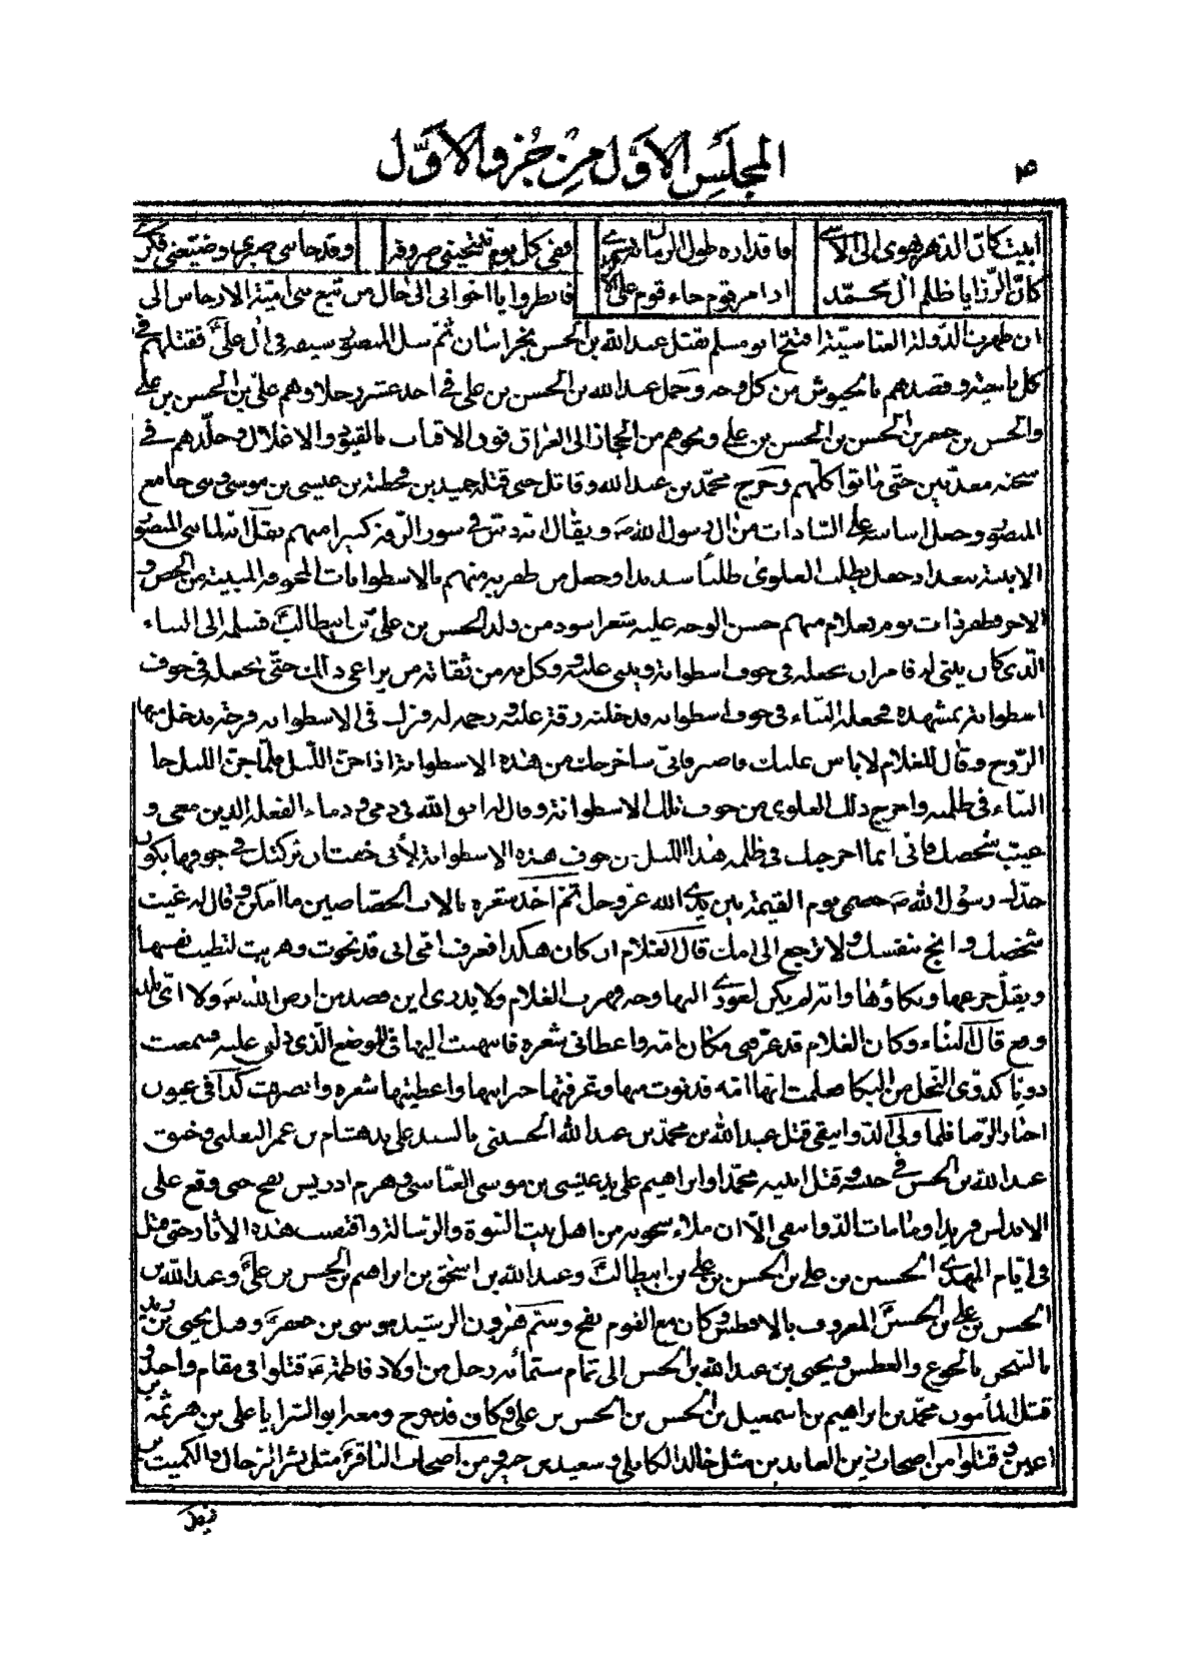 ٤ المجلس الاوّل من جزو الاوّل
ابيت كان الدهر يهوى الى الاسى فاقداره طول الزمان تجرى ففي كل يوم تنتحيني صروفه وقد خاننى صبرى وضيعنى فكرى
كانّ الرّزايا ظلم ال محمّد اذا مر قوم جاء قوم على الاثر فانظروا يا اخوانى الى حال من تبع بنى اميّة الارجاس الى
ان ظهرت الدّولة العباسيّة افتتح ابو مسلم بقتل عبد الله بن الحسن بخراسان ثمّ سل المنصور سيفه فى ال علىّ فقتلهم فى
كل ناحية وقصدهم بالجيوش من كل وجه وحمل عبد الله بن الحسن بن على فى احد عشر رجلا وهم علىّ بن الحسن بن على
والحسن بن جعفر بن الحسن بن الحسن بن على ونحوهم من الحجاز الى العراق فوق الاقتاب بالقيود والاغلال وخلّدهم فى
سجنه معذّبين حتى ماتوا كلّهم وخرج محمّد بن عبد الله وقاتل حتى قتله حميد بن قحطبة بن عيسى بن موسى وبنى جامع
المنصور وجعل اساسه على السّادات من ال رسول الله ص ويقال انه دسّ فى سور الرّقة كثيرا منهم نقل انّه لما بنى المنصور
الابنية ببغداد جعل يطلب العلوىّ طلبا شديدا وجعل من ظفر به منهم بالاسطوانات المجوفة المبنية من الجصّ و
الاجر فظفر ذات يوم بغلام منهم حسن الوجه عليه شعر اسود من ولد الحسن بن علىّ بن ابيطالب فسلمه الى البنّاء
الّذى كان يبنى له فامر ان يجعله فى جوف اسطوانة ويبنى عليه ووكل به من ثقاته من يراعى ذالك حتّى يجعله فى جوف
اسطوانة بمشهده فجعله البنّاء فى جوف اسطوانه فدخلته رقة عليه ورحمه له فترك فى الاسطوانه فرجه يدخل منها
الرّوح وقال للغلام لا باس عليك فاصبر فانّى ساخرجك من هذه الاسطوانة اذا جنّ اللّيل فلمّا جنّ الليل جاء
البنّاء فى ظلمته واخرج ذلك العلوى من جوف تلك الاسطوانة وقال له اتق الله فى دمى ودماء الفعلة الذين معى و
غيّب شخصك فانى انما اخرجتك فى ظلمه هذا الليل من جوف هذه الاسطوانة لأنى خفت ان تركتك فى جوفها يكون
جدّك رسول الله ص خصمى يوم القيمة بين يدى الله عزّ وجل ثمّ اخذ شعره بالات الجصّاصين ما امكن وقال له غيّب
شخصك وانج بنفسك ولا ترجع الى امك قال الغلام ان كان هكذا فعرّف امّى انى قد نجوت وهربت لتطيب نفسها
ويقلّ جزعها وبكاؤها وانه لم يكن لعودى اليها وجه فهرب الغلام ولا يدرى اين قصد من ارض الله ولا اىّ بلد
وقع قال البنّاء وكان الغلام قد عرّفنى مكان امّه واعطانى شعره فانتهيت اليها فى الموضع الّذى دلّنى عليه فسمعت
دويّا كدوىّ النّحل من البكا فعلمت انّها امه فدنوت منها وعرفتها خبر ابنها واعطيتها شعره وانصرفت كذا فى عيون
اخبار الرّضا فلما ولى الدّوانيقى قتل عبد الله بن محمّد بن عبد الله الحسينى بالسند على يد هشام بن عمر التغلبى وخنق
عبد الله بن الحسن فى حبسه وقتل ابنيه محمّدا وابراهيم على يد عيسى بن موسى العبّاسى وهزم ادريس بفخ حتى وقع على
الاندلس فريدا ومامات الدّوانيقى الّا ان ملاء سجونه من اهل بيت النبوّة والرّسالة واقتفيت هذه الاثار حتى قتل
فى ايّام المهدى الحسين بن على بن الحسن بن على بن ابيطالب وعبد الله بن اسحق بن ابراهيم بن الحسن بن علىّ وعبد الله بن
الحسن بن على بن الحسين المعروف بالافطس وكان مع القوم بفخ وسمّ هرون الرشيد موسى بن جعفر وقتل يحيى بن زيد
بالسّجن بالجوع والعطش ويحيى بن عبد الله بن الحسن الى تمام ستمائه رجل من اولاد فاطمة ع قتلوا فى مقام واحد و
قتل المأمون محمّد بن ابراهيم بن اسمعيل بن الحسن بن الحسن بن على وكان قد خرج ومعه ابو السّرايا على بن هرثمة بن
اعين وقتلوا من اصحاب زين العابدين مثل خالد الكابلى وسعيد بن جبير ومن اصحاب الباقر مثل بشر الرّحال والكميت بن